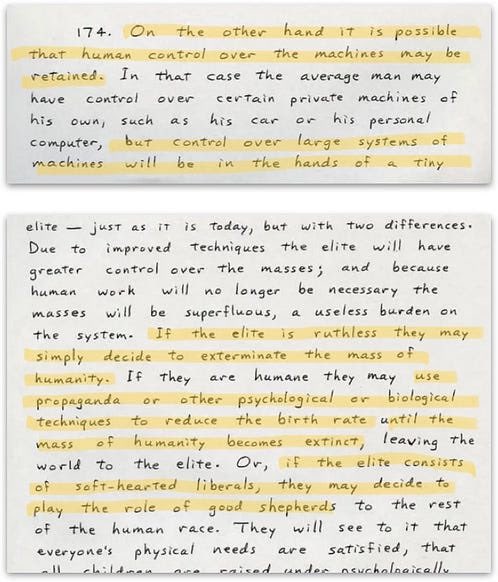 174. On the other hand it is possible
that human control over the machines may be
retained. In that case the average man may
have control over certain private machines of
his own, such as his car or his personal
computer, but control over large systems of
machines will be in the hands of a tiny
elite — just as it is today, but with two differences.
Due to improved techniques the elite will have
greater control over the masses; and because
human work will no longer be necessary the
masses will be superfluous, a useless burden on
the system. If the elite is ruthless they may
simply decide to exterminate the mass of
humanity. If they are humane they may use
propaganda or other psychological or biological
techniques to reduce the birth rate until the
mass of humanity becomes extinct, leaving the
world to the elite. Or, if the elite consists
of soft-hearted liberals, they may decide to
play the role of good shepherds to the rest
of the human race. They will see to it that
everyone's physical needs are satisfied, that
all children are raised under psychologically